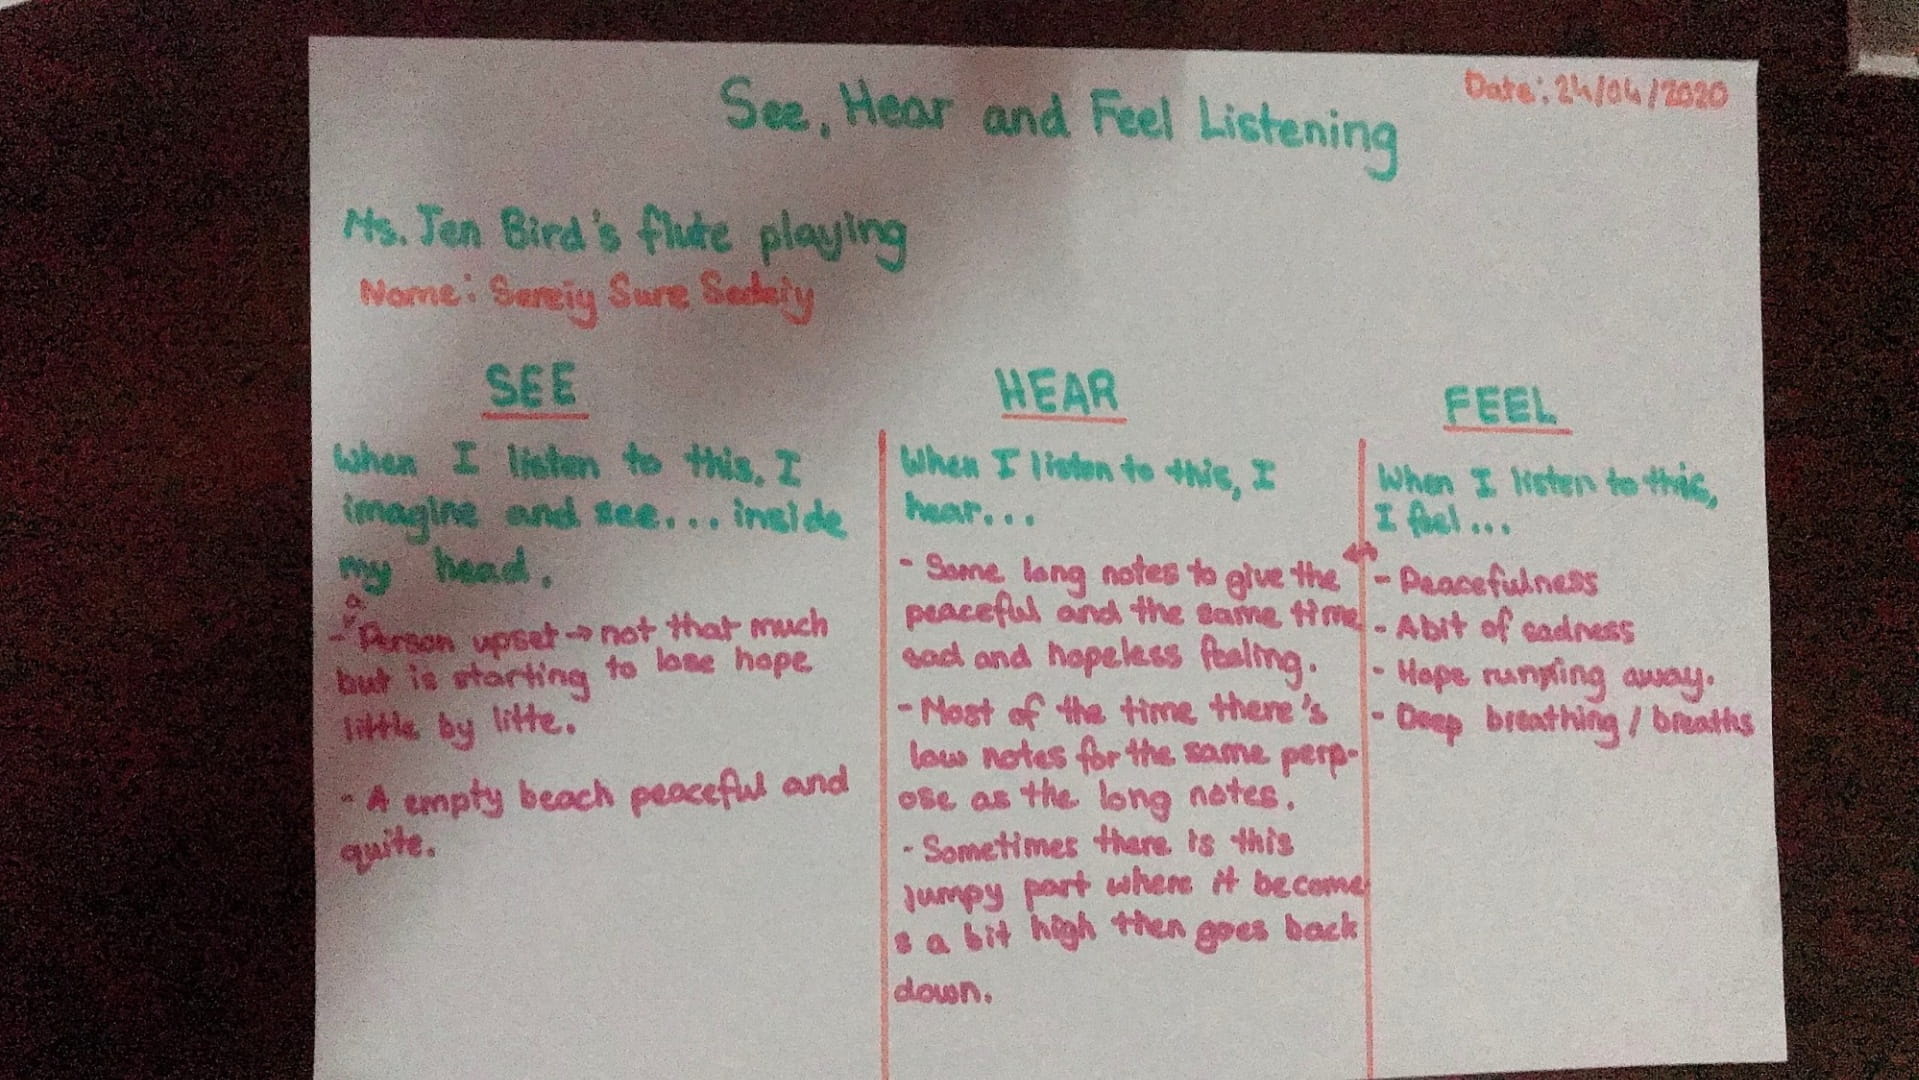 See, Hear and Feel Listening
Date: 24/04/2020
Ms. Jen Bird's flute playing
Name: Sure
SEE
When I listen to this, I
imagine and see... inside
my head.
a
- Person upset → not that much
but is starting to lose hope
little by litte.
- A empty beach peaceful and
quite.
HEAR
When I listen to this, I
hear...
- Some long notes to give the
peaceful and the same time
sad and hopeless feeling.
- Most of the time there's
low notes for the same perp-
ose as the long notes.
- Sometimes there is this
jumpy part where it become
s a bit high then goes back
down.
FEEL
When I listen to this,
I feel...
- Peacefulness
- Abit of sadness
- Hope running away.
- Deep breathing / breaths